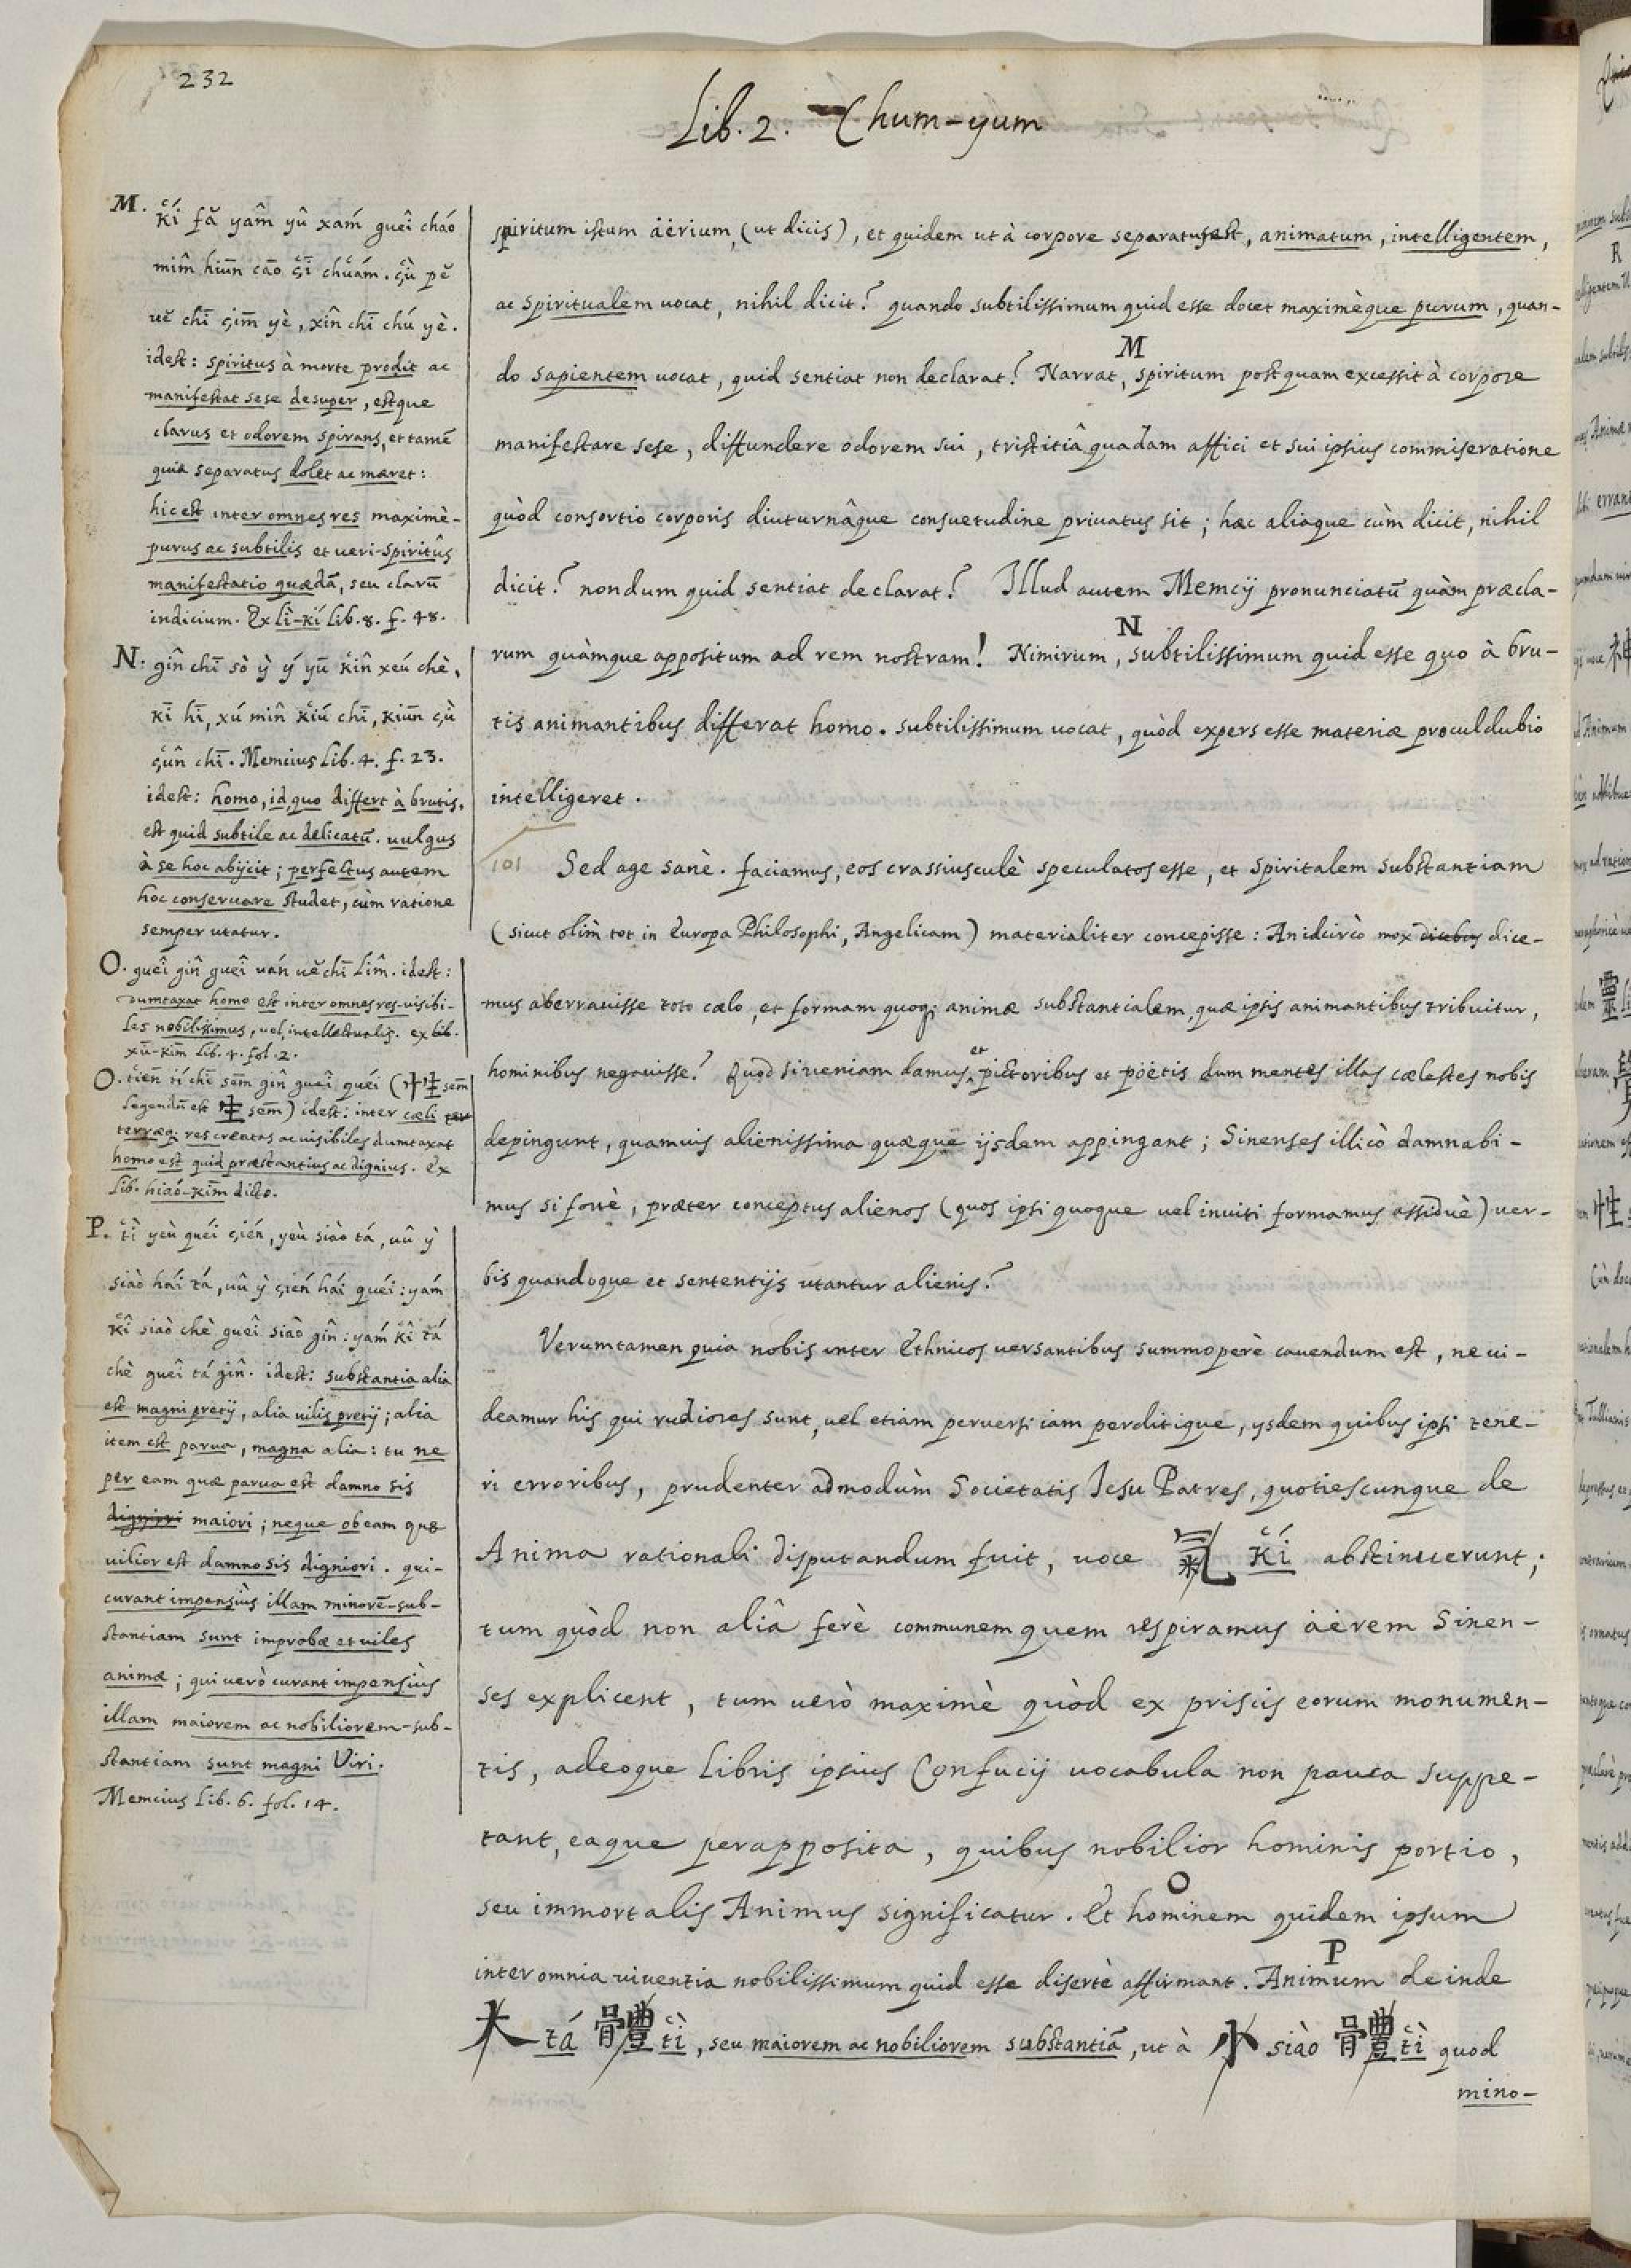 232
Lib. 2. Chum-yum
M. kí fǎ yam̂ yû xaḿ gueî cháo
mim̂ hiun̄ cāo çī chuaḿ. çù pĕ
uĕ chī çim̄ yè, xin̂ chī chú yè.
idest: spiritus à morte prodit ac
manifestat sese desuper, estque
clarus et odorem spirans, et tamē
quia separatus dolet ac mæret:
hic est inter omnes res maximè-
purus ac subtilis et ueri-spiritûs
manifestatio quædā, seu clarū
indicium. Ex li-kí lib. 8. f. 48.
N. gin̂ chī sò ỳ ý yū kin̂ xeú chè,
kī hī, xú min̂ kiú chī, kiun̄ çù
çûn chī. Memcius Lib. 4. f. 23.
idest: homo, id, quo differt à brutis,
est quid subtile ac delicatū. uulgus
à se hoc abijcit; perfectus autem
hoc conseruare studet, cùm ratione
semper utatur.
O. gueî gin̂ gueî uán uĕ chī lim̂. idest:
dumtaxat homo est inter omnes res-uisibi-
les nobilissimus, uel, intellectualis. ex lib.
xū-kim̄ lib. 4. fol. 2.
O. tien̄ tí chī sem̄ gin̂ gueî quéi (性 sem̄
legendū est 生 sem̄) idest: inter cœli
terræq; res creatas ac uisibiles dumtaxat
homo est quid præstantius ac dignius. Ex
lib. hiaó-kim̄ dicto.
P. tì yeù quéi çień, yeù siào tá, uû ỳ
siào hái tá, uû ỳ çień hái quéi: yaḿ
kî siaò chè gueî siaò gin̂: yaḿ kî tá
chè gueî tá gin̂. idest: substantia alia
est magni pretij, alia uilis pretij; alia
item est parua, magna alia: tu ne
per eam quæ parua est damno sis
maiori; neque ob eam quæ
uilior est damno sis digniori. qui-
curant impensiùs illam minorē-sub-
stantiam sunt improbæ et uiles
animæ; qui uerò curant impensiùs
illam maiorem ac nobiliorem-sub-
stantiam sunt magni Viri.
Memcius Lib. 6. fol. 14.
spiritum istum äërium, (ut dicis), et quidem ut à corpore separatus est, animatum, intelligentem,
ac spiritualem uocat, nihil dicit? quando subtilissimum quid esse docet maximèque purum, quan-
M
do sapientem uocat, quid sentiat non declarat? Narrat, spiritum postquam excessit à corpore
manifestare sese, diffundere odorem sui, tristitiâ quadam affici et sui ipsius commiseratione
quòd consortio corporis diuturnâque consuetudine priuatus sit; hæc aliaque cùm dicit, nihil
dicit? nondum quid sentiat declarat? Illud autem Memcij pronunciatū quàm præcla-
N
rum quàmque appositum ad rem nostram! Nimirum, subtilissimum quid esse quo à bru-
tis animantibus differat homo. subtilissimum uocat, quòd expers esse materiæ proculdubio
intelligeret.
101 Sed age sanè. faciamus, eos crassiusculè speculatos esse, et spiritalem substantiam
(sicut olim̀ tot in Europa Philosophi, Angelicam) materialiter concepisse: An idcircò mox dice-
mus aberrauisse toto cælo, et formam quoq; animæ substantialem, quæ ipsis animantibus tribuitur,
hominibus negauisse? Quod si ueniam damus et pictoribus et pöëtis dum mentes illas cælestes nobis
depingunt, quamuis alienissima quæque ijsdem appingant; Sinenses illicò damnabi-
mus si fortè, præter conceptus alienos (quos ipsi quoque uel inuiti formamus assiduè) uer-
bis quandoque et sententijs utantur alienis?
Verumtamen quia nobis inter Ethnicos uersantibus summopèrè cauendum est, ne ui-
deamur his qui rudiores sunt, uel etiam peruersi iam perditique, ysdem quibus ipsi tene-
ri erroribus, prudenter admodùm Societatis Jesu Patres, quotiescunque de
Anima rationali disputandum fuit, uoce 氣 kí abstinuerunt;
tum quòd non aliâ ferè communem quem respiramus äèrem Sinen-
ses explicent, tum uerò maximè quòd ex priscis eorum monumen-
tis, adeoque Libris ipsius Confucij uocabula non pauca suppe-
tant, eaque perapposita, quibus nobilior hominis portio,
O
seu immortalis Animus significatur. Et hominem quidem ipsum
P
inter omnia uiuentia nobilissimum quid esse disertè affirmant. Animum deinde
大 tá 體 tì, seu maiorem ac nobiliorem substantiā, ut à 小 siào 體 tì quod
mino-